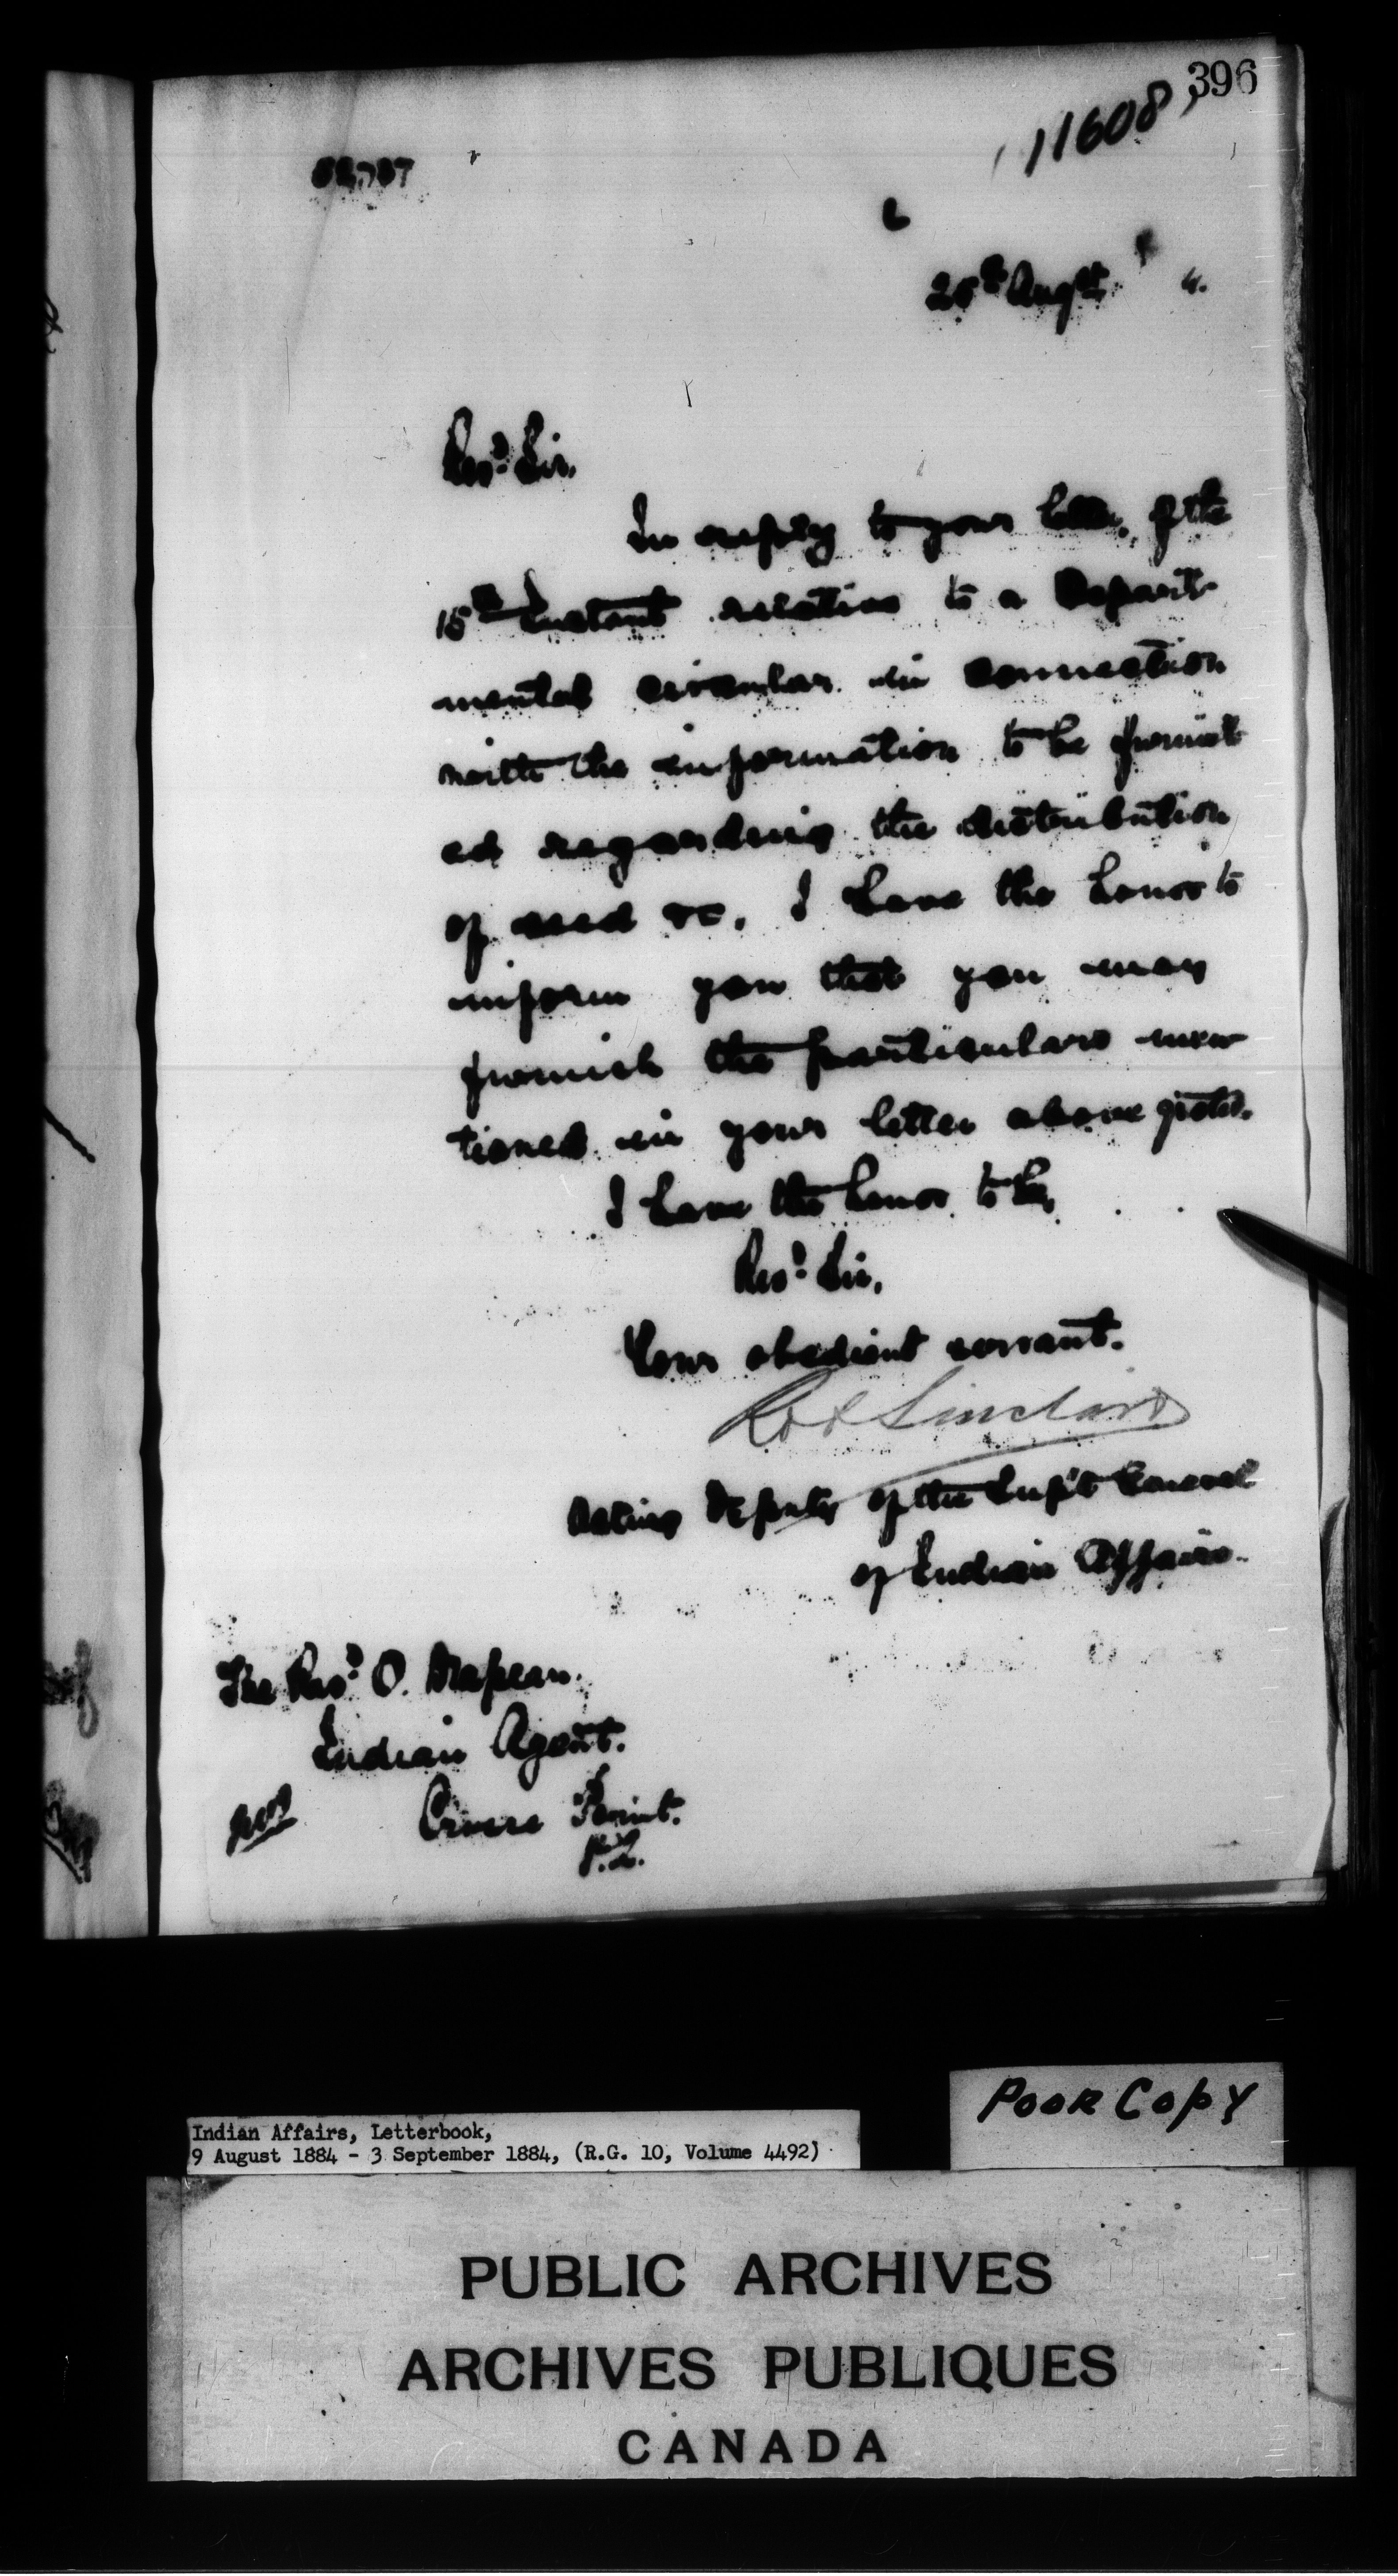 396
11608
25th Augst 4.
Revd. Sir,
In reply to your letter, of the
15th Instant relative to a Depart-
mental circular in connection
with the information to be furnish
ed regarding the distribution
of seed &c, I have the honor to
inform you that you may
furnish the particulars men
tioned in your letter above quoted.
I have the honor to be,
Revd. Sir,
Your obedient servant.
Rob Sinclair
Acting Deputy of the Supt General
of Indian Affairs.
The Revd O. Drapeau.
Indian Agent.
Cross Point.
P.Q.
Poor Copy
Indian Affairs, Letterbook,
9 August 1884 - 3 September 1884, (R.G. 10, Volume 4492)
PUBLIC ARCHIVES
ARCHIVES PUBLIQUES
CANADA